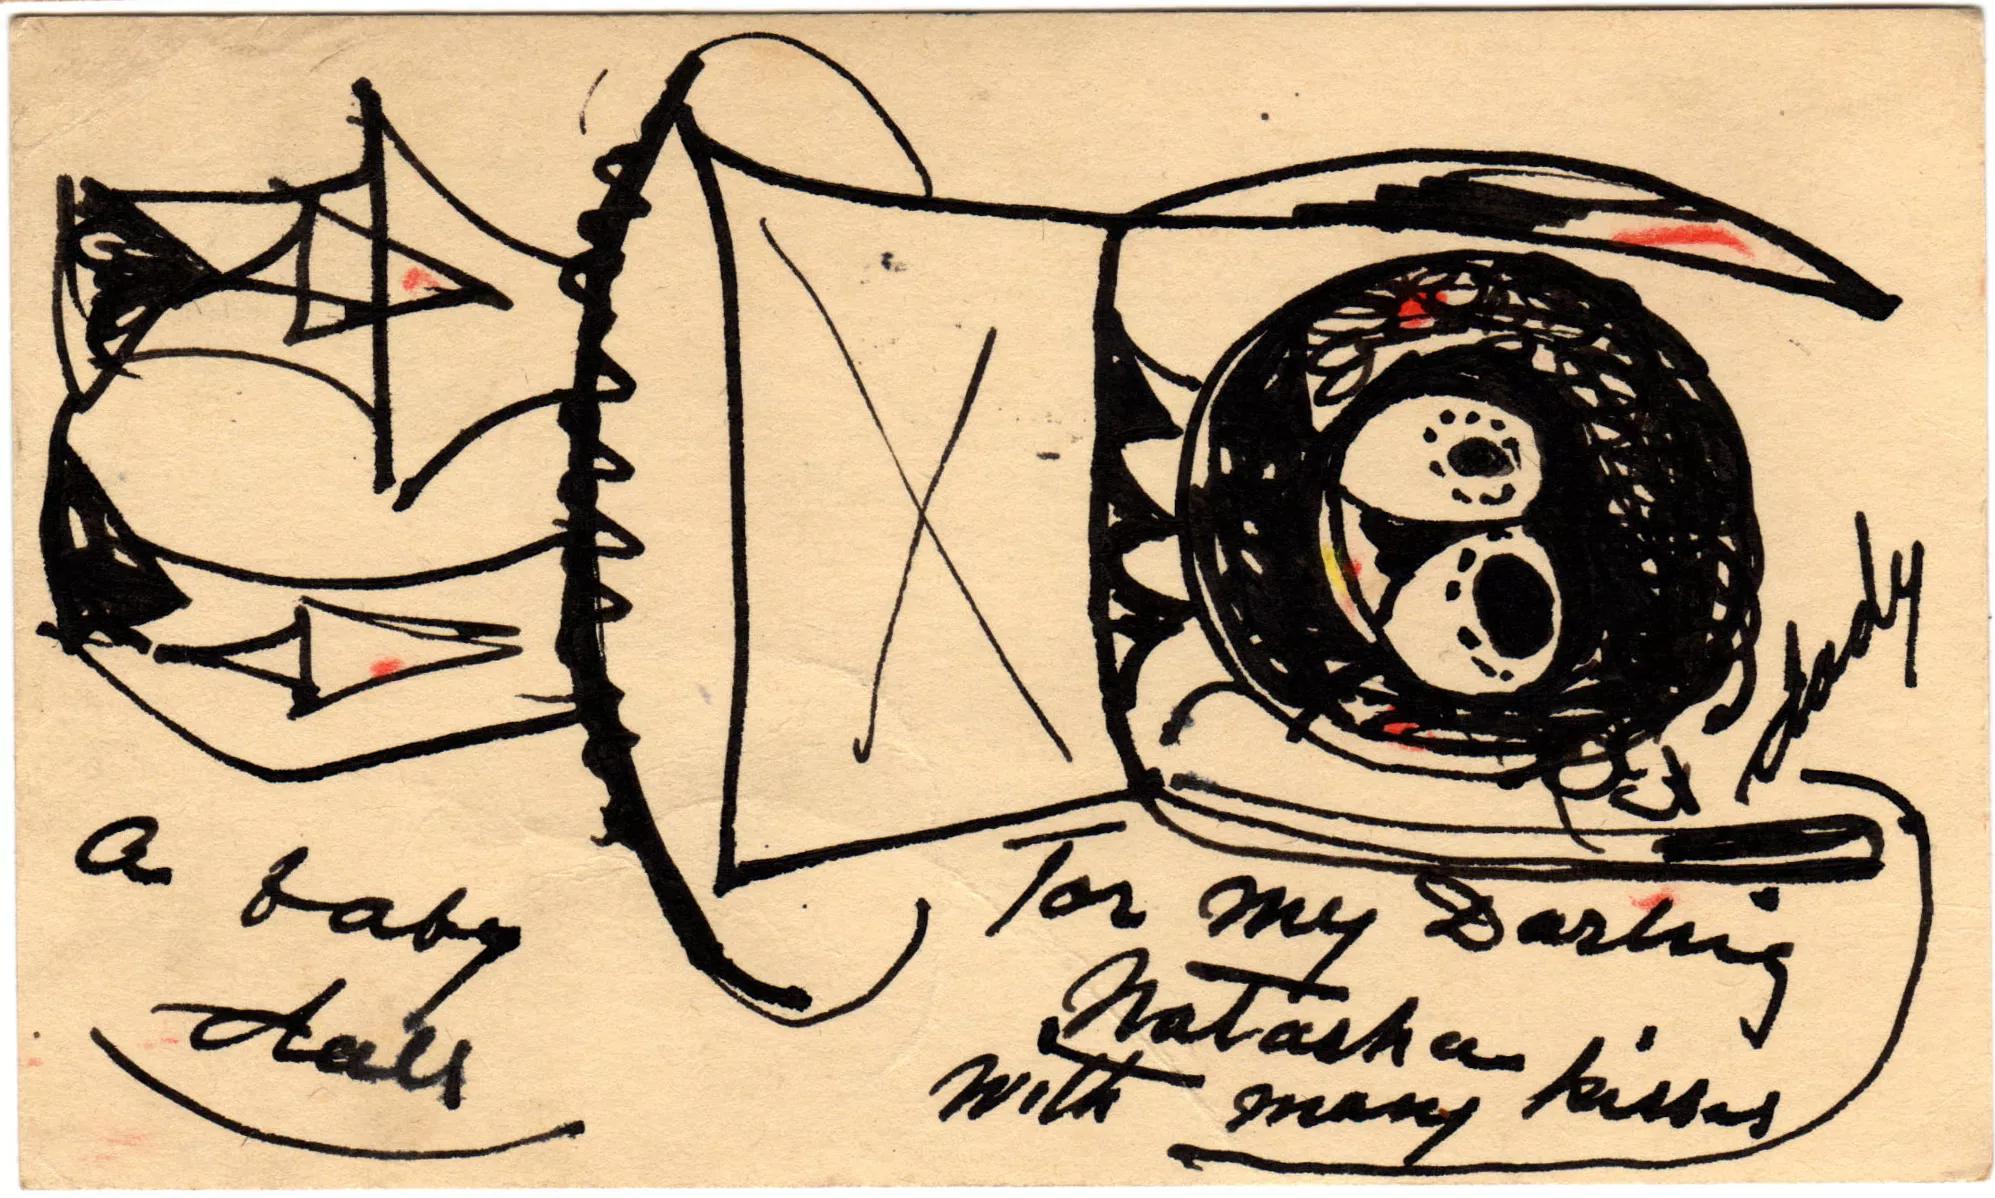 A baby
doll
For my Darling
Natasha
with many kisses